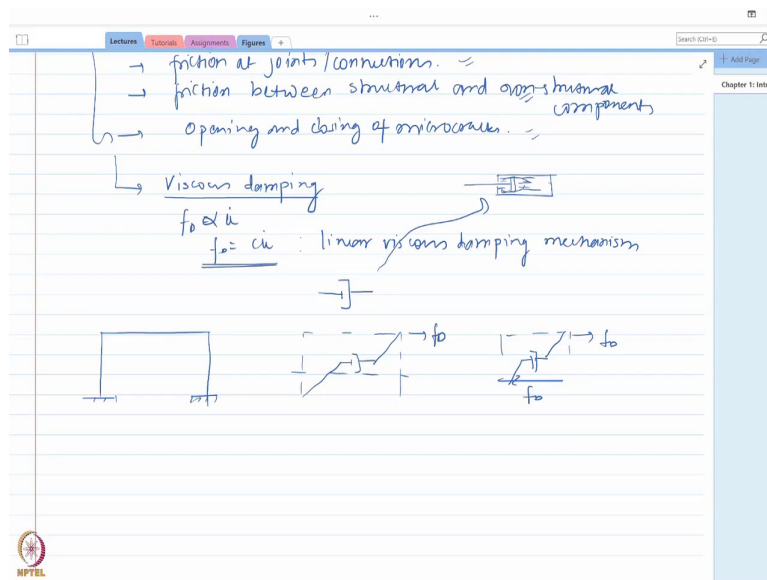 ...
Lectures Tutorials Assignments Figures +
Search (Ctrl+E)
+ Add Page
Chapter 1: Int
→ friction at joints/connections.
→ friction between structural and non-structural
components
→ Opening and closing of microcracks.
→ Viscous damping
f_D ∝ u̇
f_D = cu̇ : linear viscous damping mechanism
→ f_D
→ f_D
f_D
NPTEL